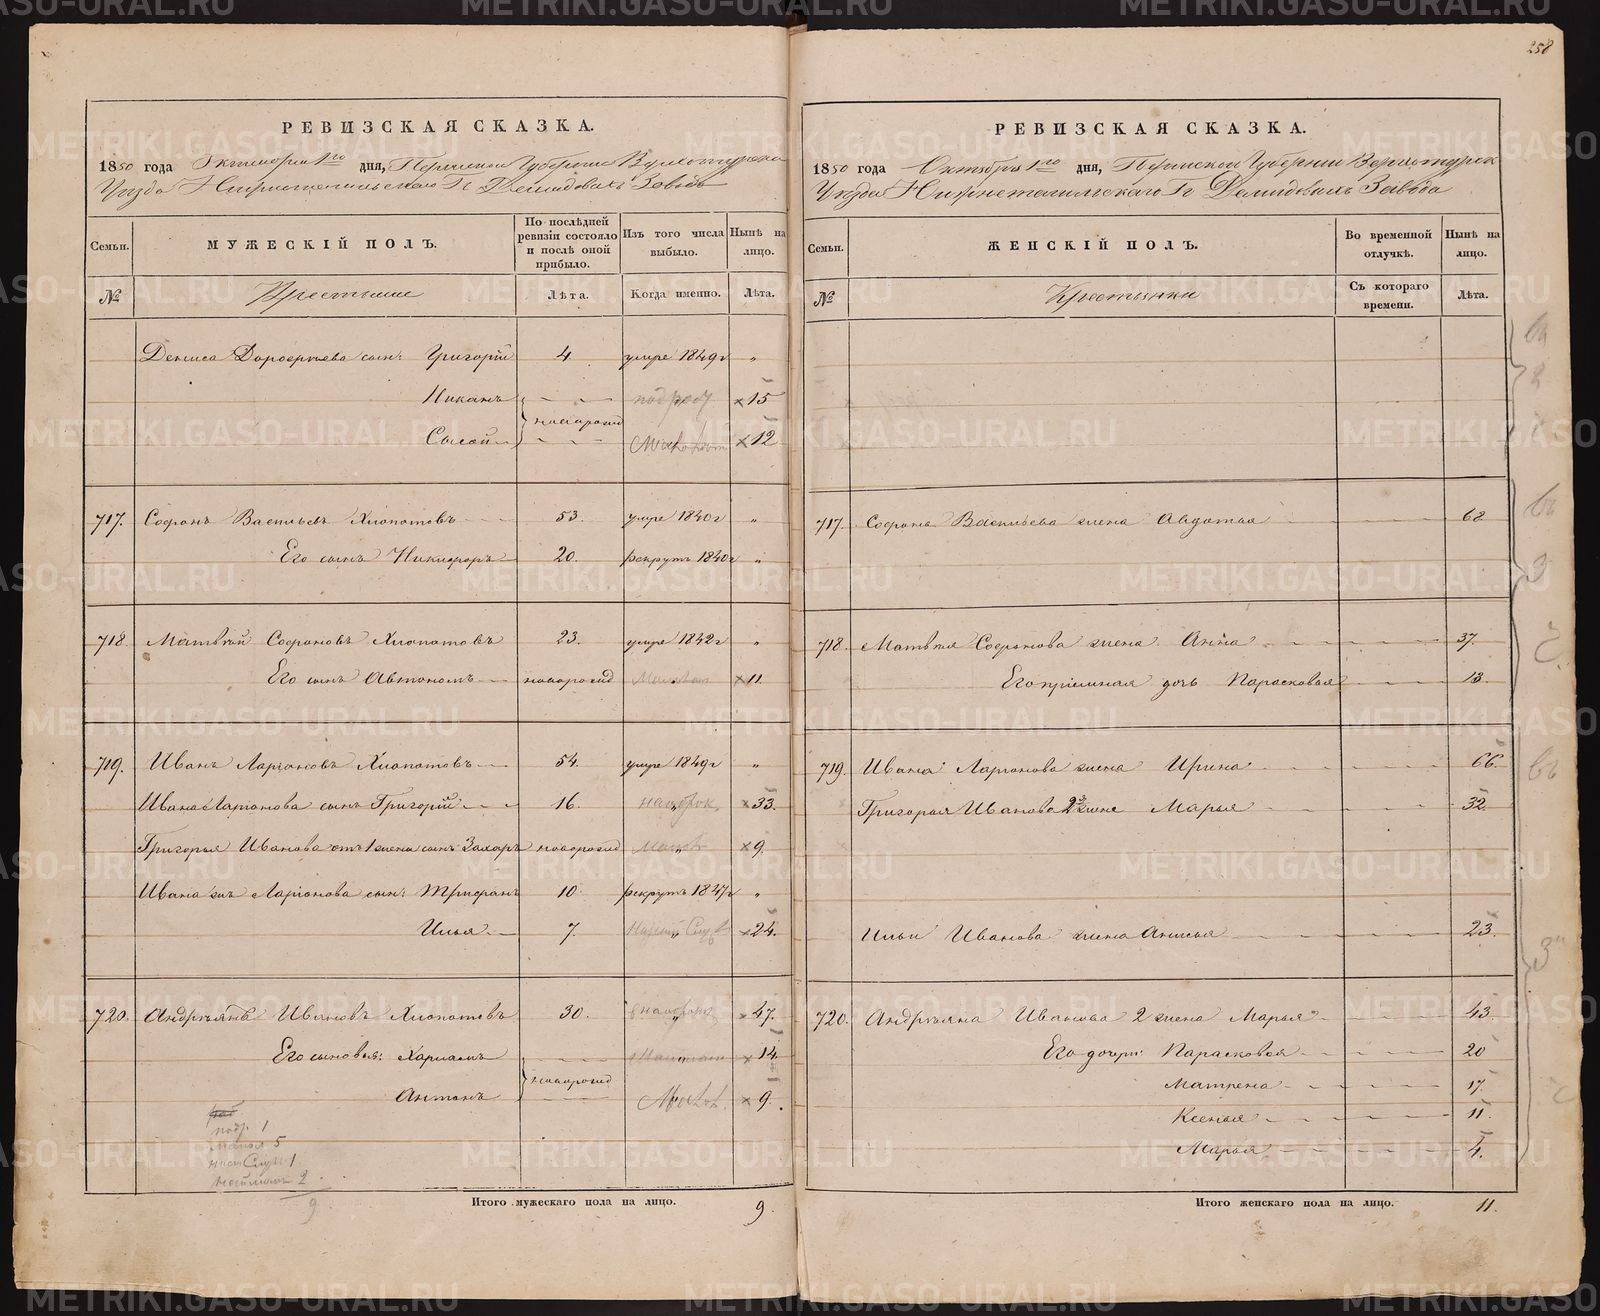 258
РЕВИЗСКАЯ СКАЗКА.
1850 года Октября 1го дня, Пермской Губернии Верхотурска
Уезда Нижнетагильскаго Гг Демидовых Завода
Семьи. МУЖЕСКІЙ ПОЛЪ. По послѣдней ревизіи состояло и послѣ оной прибыло. Изъ того числа выбыло. Нынѣ на лицо.
№ Крестьяне Лѣта. Когда именно. Лѣта.
Дениса Дорофеева сын: Григорій 4. умре 1849г "
Никанъ
новорожд
15
12
717. Софронъ Васильевъ Хлопотовъ 53. умре 1840г "
Его сынъ Никифоръ 20. рекрутъ 1840г "
718. Матвѣй Софроновъ Хлопотовъ 23. умре 1842г "
Его сынъ Автономъ новорожд 11.
719. Иванъ Ларіоновъ Хлопотовъ 54. умре 1849г "
Ивана Ларіонова сынъ Григорій 16. 33.
Григорья Иванова отъ 1 жены сынъ Захаръ новорожд 9.
Ивана жъ Ларіонова сын: Трифонъ 10. рекрутъ 1847г "
Илья 7. 24.
720. Андреянъ Ивановъ Хлопотовъ 30. 47.
Его сыновья: Харламъ 14.
новорожд
Антонъ 9.
подр. 1
5
1
2
9
Итого мужескаго пола на лицо. 9.
РЕВИЗСКАЯ СКАЗКА.
1850 года Октября 1го дня, Пермской Губерніи Верхотурск
Уезда Нижнетагильскаго Гг Демидовыхъ Завода
Семьи. ЖЕНСКІЙ ПОЛЪ. Во временной отлучкѣ. Нынѣ на лицо.
№ Крестьянки Съ котораго времени. Лѣта.
717. Софрона Васильева жена Авдотья 62
718. Матвѣя Софронова жена Анна 37.
Его пріемная дочь Парасковья 13.
719. Ивана Ларіонова жена Ирина 66.
Григорья Иванова 2я жена Марья 32.
Ильи Иванова жена Анисья 23.
720. Андреяна Иванова 2 жена Марья 43.
Его дочери: Парасковья 20
Матрена 17.
Ксенья 11.
Марья 4.
Итого женскаго пола на лицо. 11.
METRIKI.GASO-URAL.RU